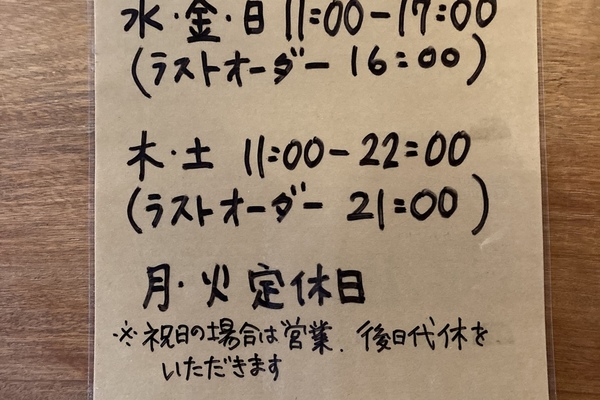 水・金・日 11:00-17:00
(ラストオーダー 16:00)
木・土 11:00-22:00
(ラストオーダー 21:00)
月・火 定休日
※祝日の場合は営業、後日代休を
いただきます